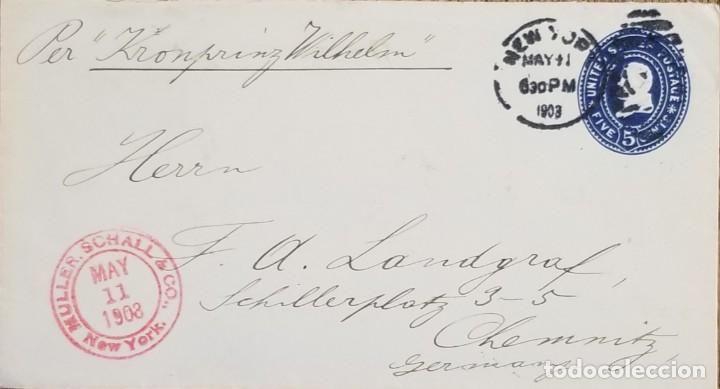 Per "Kronprinz Wilhelm"
NEW YOR
MAY 11
630 PM
1903
UNITED STATES POSTAGE
FIVE 5 CENTS
Herrn
F. A. Landgraf,
Schillerplatz 3-5
Chemnitz
Germany
MULLER, SCHALL & CO.,
MAY
11
1903
New York.
todocoleccion